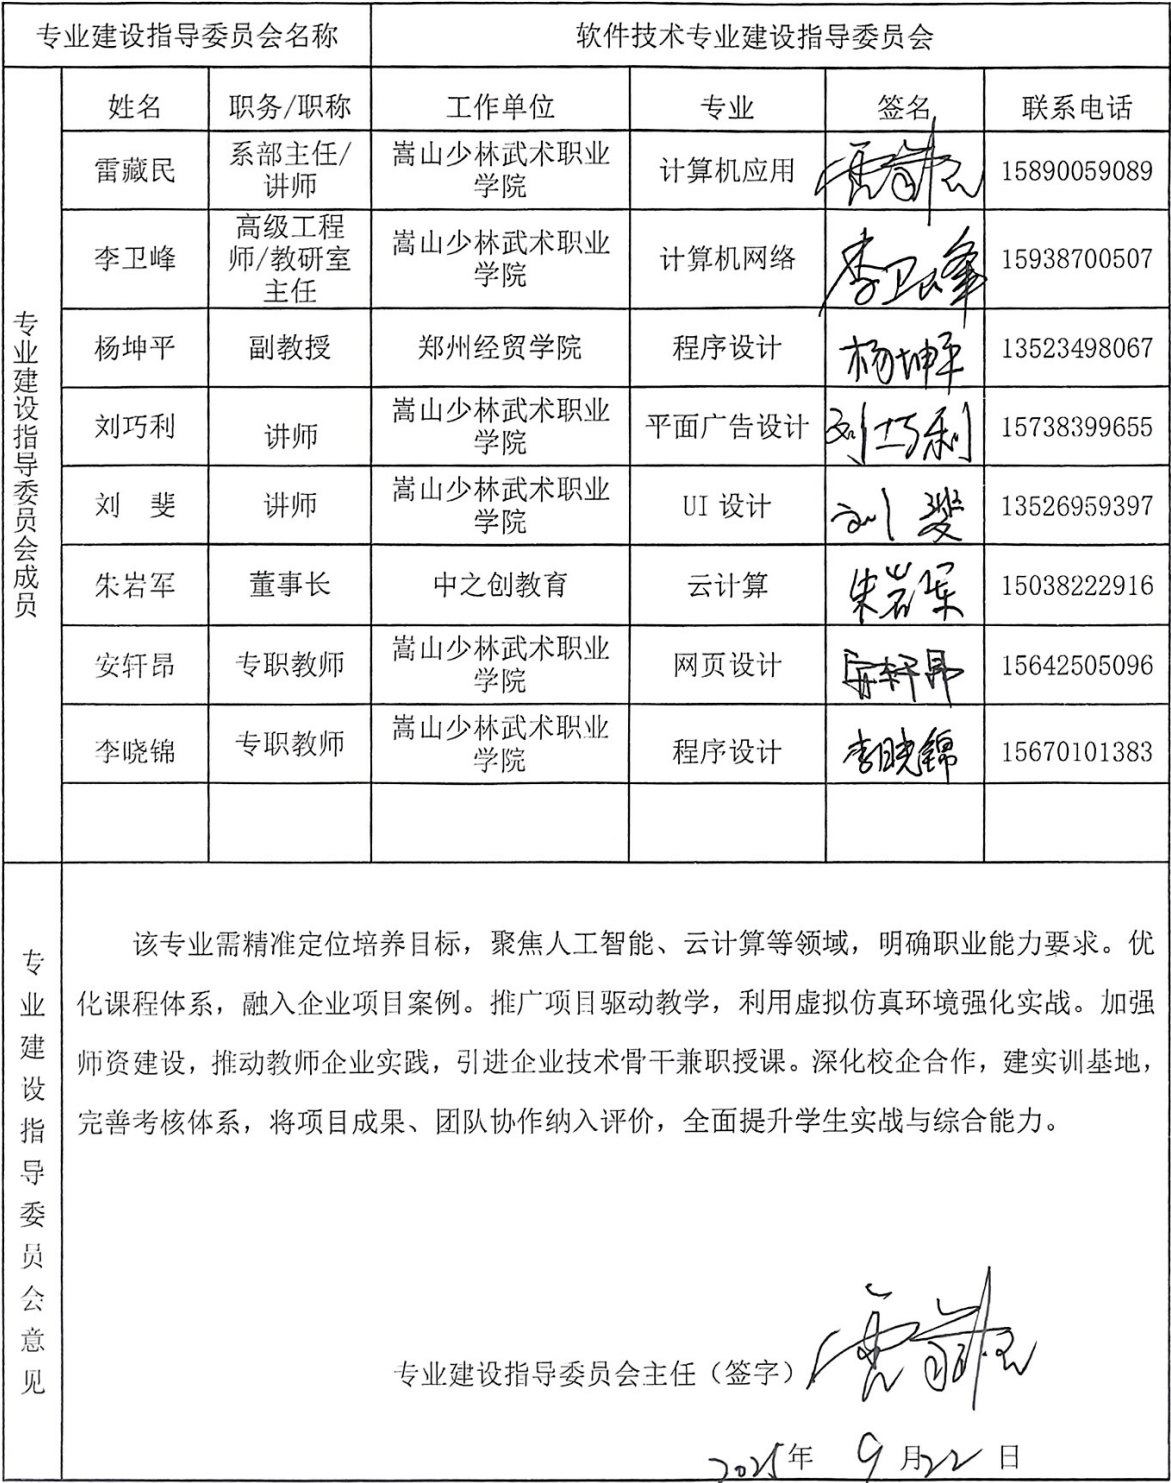 专业建设指导委员会名称 软件技术专业建设指导委员会
专业建设指导委员会成员
姓名 职务/职称 工作单位 专业 签名 联系电话
雷藏民 系部主任/讲师 嵩山少林武术职业学院 计算机应用 雷藏民 15890059089
李卫峰 高级工程师/教研室主任 嵩山少林武术职业学院 计算机网络 李卫峰 15938700507
杨坤平 副教授 郑州经贸学院 程序设计 杨坤平 13523498067
刘巧利 讲师 嵩山少林武术职业学院 平面广告设计 刘巧利 15738399655
刘 斐 讲师 嵩山少林武术职业学院 UI 设计 刘 斐 13526959397
朱岩军 董事长 中之创教育 云计算 朱岩军 15038222916
安轩昂 专职教师 嵩山少林武术职业学院 网页设计 安轩昂 15642505096
李晓锦 专职教师 嵩山少林武术职业学院 程序设计 李晓锦 15670101383
专业建设指导委员会意见
该专业需精准定位培养目标，聚焦人工智能、云计算等领域，明确职业能力要求。优
化课程体系，融入企业项目案例。推广项目驱动教学，利用虚拟仿真环境强化实战。加强
师资建设，推动教师企业实践，引进企业技术骨干兼职授课。深化校企合作，建实训基地，
完善考核体系，将项目成果、团队协作纳入评价，全面提升学生实战与综合能力。
专业建设指导委员会主任（签字） 雷藏民
2025年 9 月22 日